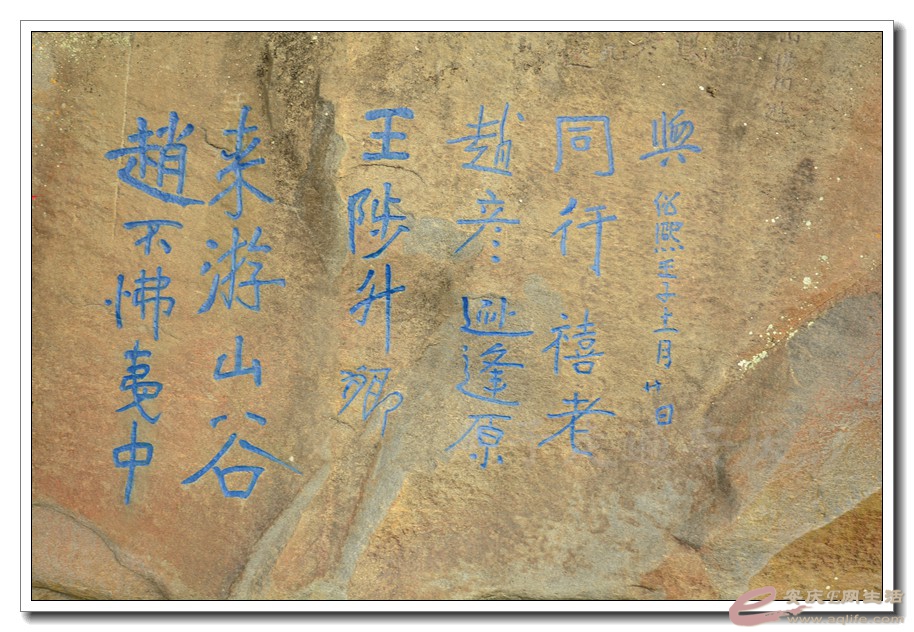 趙不怫夷中
来游山谷
王陟升卿
趙彦逢原
同行禧老
與 紹熙壬子十二月廿日
安庆E网生活
www.aqlife.com